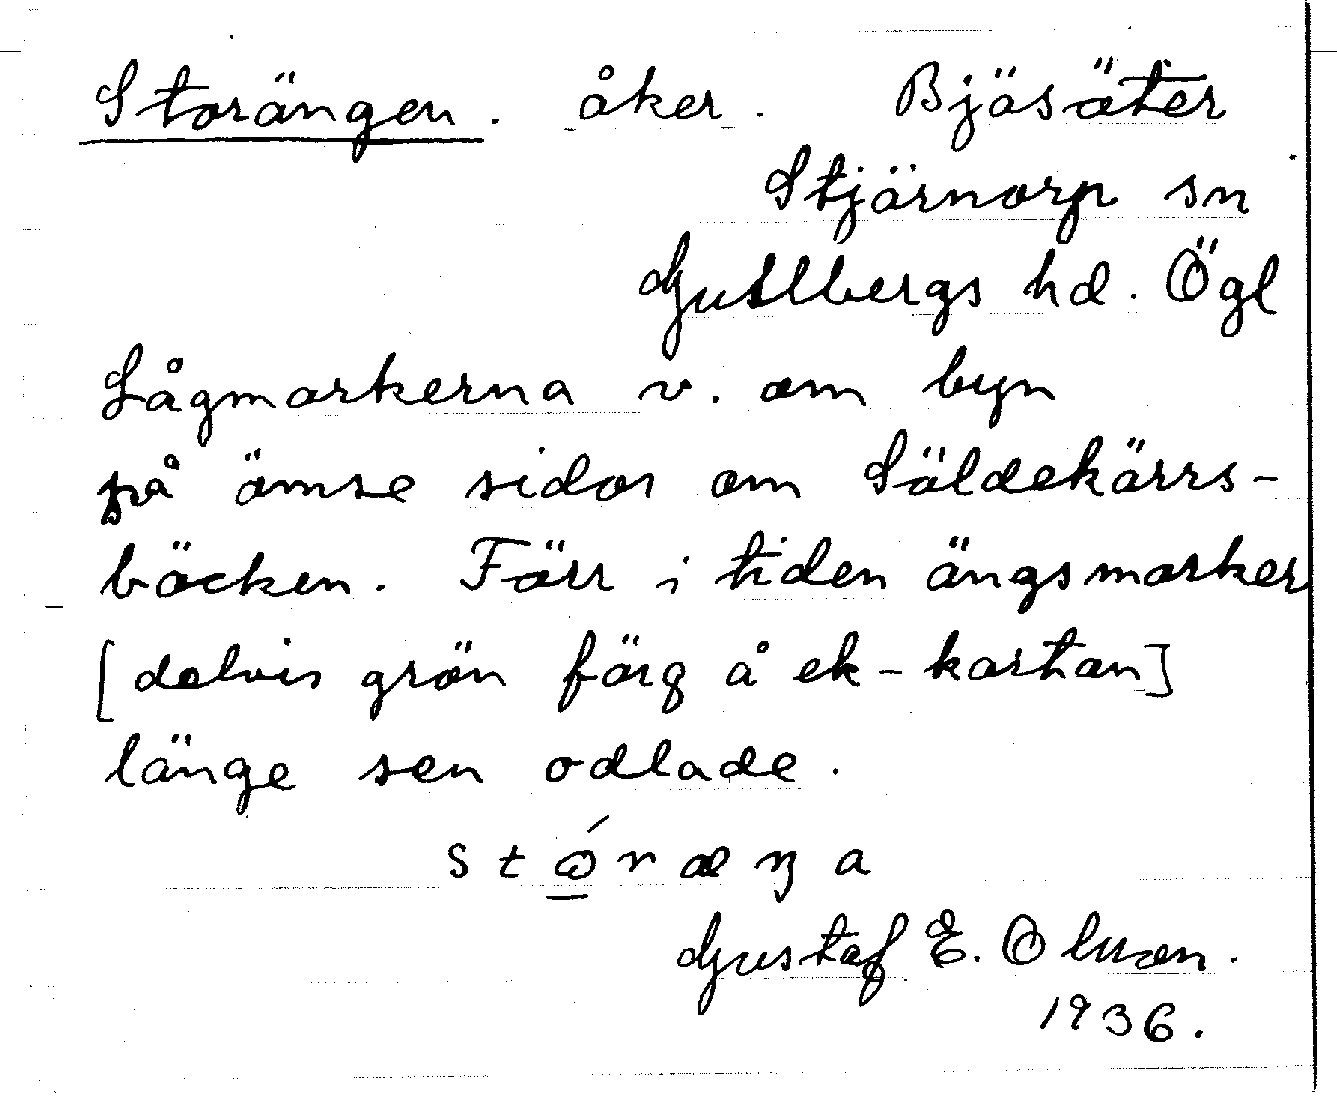 Storängen. åker. Bjäsäter
Stjärnorp sn
Gullbergs hd. Ögl
Lågmarkerna v. om byn
på ömse sidor om Säldekärrs-
bäcken. Förr i tiden ängsmarker
[delvis grön färg å ek-kartan]
länge sen odlade.
stó̲ræŋa
Gustaf E. Olsson.
1936.